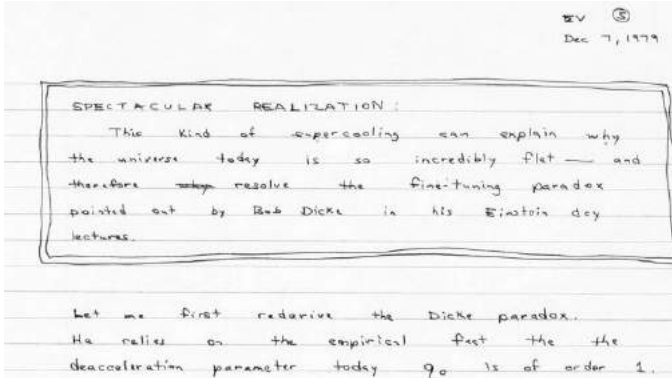 EV ⑤
Dec 7, 1979
SPECTACULAR REALIZATION:
This kind of supercooling can explain why
the universe today is so incredibly flat — and
therefore resolve the fine-tuning paradox
pointed out by Bob Dicke in his Einstein day
lectures.
Let me first rederive the Dicke paradox.
He relies on the empirical fact the the
deacceleration parameter today q₀ is of order 1.